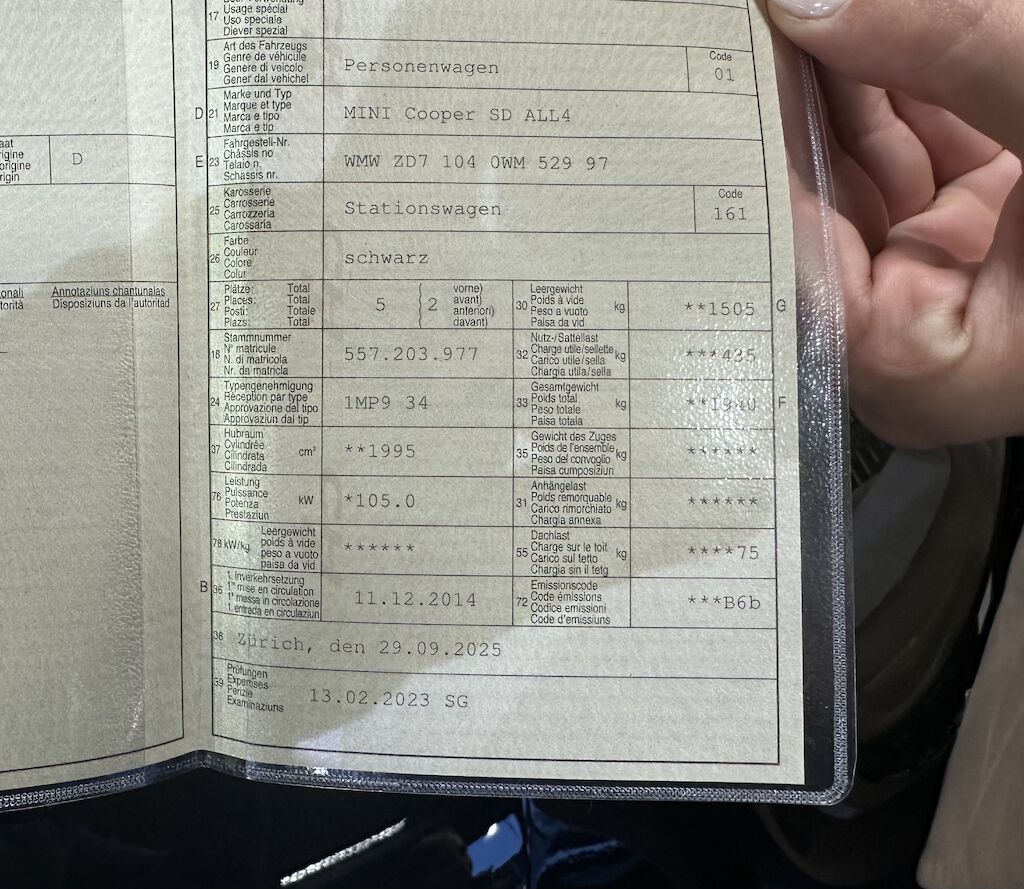 17 Usage spécial
Uso speciale
Diever spezial
19 Art des Fahrzeugs
Genre de véhicule
Genere di veicolo
Gener dal vehichel
Personenwagen
Code
01
D 21 Marke und Typ
Marque et type
Marca e tipo
Marca e tip
MINI Cooper SD ALL4
E 23 Fahrgestell-Nr.
Châssis no
Telaio n.
Schassis nr.
WMW ZD7 104 0WM 529 97
25 Karosserie
Carrosserie
Carrozzeria
Carossaria
Stationswagen
Code
161
26 Farbe
Couleur
Colore
Colur
schwarz
27 Plätze: Total
Places: Total
Posti: Totale
Plazs: Total
5 { 2
vorne)
avant)
anteriori)
davant)
30 Leergewicht
Poids à vide
Peso a vuoto
Paisa da vid
kg
**1505 G
18 Stammnummer
N° matricule
N. di matricola
Nr. da matricla
557.203.977
32 Nutz-/Sattellast
Charge utile/sellette
Carico utile/sella
Chargia utila/sella
kg
***435
24 Typengenehmigung
Réception par type
Approvazione del tipo
Approvaziun dal tip
1MP9 34
33 Gesamtgewicht
Poids total
Peso totale
Paisa totala
kg
**1940 F
37 Hubraum
Cylindrée
Cilindrata
Cilindrada
cm³
**1995
35 Gewicht des Zuges
Poids de l'ensemble
Peso del convoglio
Paisa cumposiziun
kg
******
76 Leistung
Puissance
Potenza
Prestaziun
kW
*105.0
31 Anhängelast
Poids remorquable
Carico rimorchiato
Chargia annexa
kg
******
78 kW/kg
Leergewicht
poids à vide
peso a vuoto
paisa da vid
******
55 Dachlast
Charge sur le toit
Carico sul tetto
Chargia sin il tetg
kg
****75
B 36 1. Inverkehrsetzung
1re mise en circulation
1a messa in circolazione
1. entrada en circulaziun
11.12.2014
72 Emissionscode
Code émissions
Codice emissioni
Code d'emissiuns
***B6b
38 Zürich, den 29.09.2025
39 Prüfungen
Expertises
Perizie
Examinaziuns
13.02.2023 SG
D
onali Annotaziuns chantunalas
torità Disposiziuns da l'autoritad